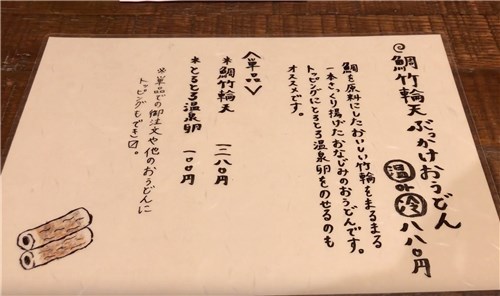 ◎鯛竹輪天ぶっかけおうどん
温or冷 八八〇円
鯛を原料にしたおいしい竹輪をまるまる
一本さっくり揚げたおなじみのおうどんです。
トッピングにとろとろ温泉卵をのせるのも
オススメです。
〈単品〉
*鯛竹輪天 二八〇円
*とろとろ温泉卵 一〇〇円
※単品での御注文や他のおうどんに
トッピングもできます。